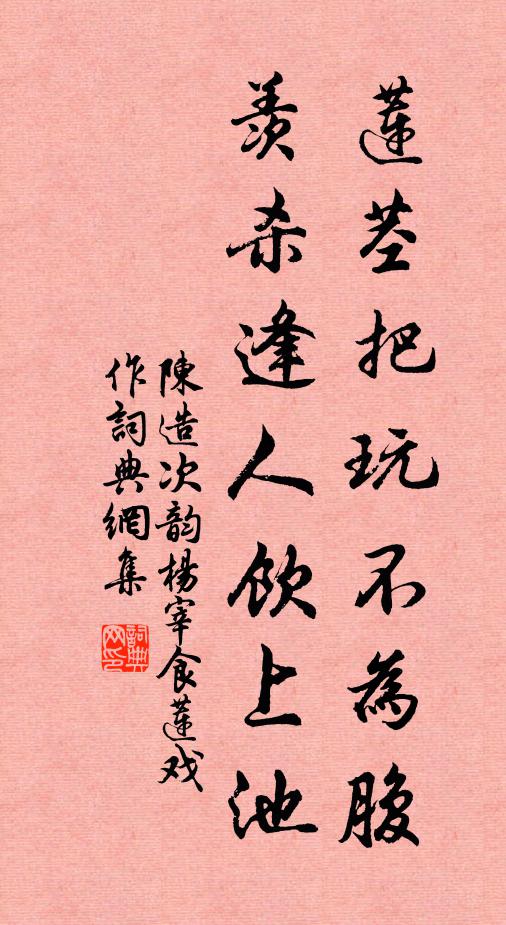 蓮莖把玩不為腹
羨殺逢人飲上池
陳造次韵楊宰食蓮戏
作詞典網集
詞典网印